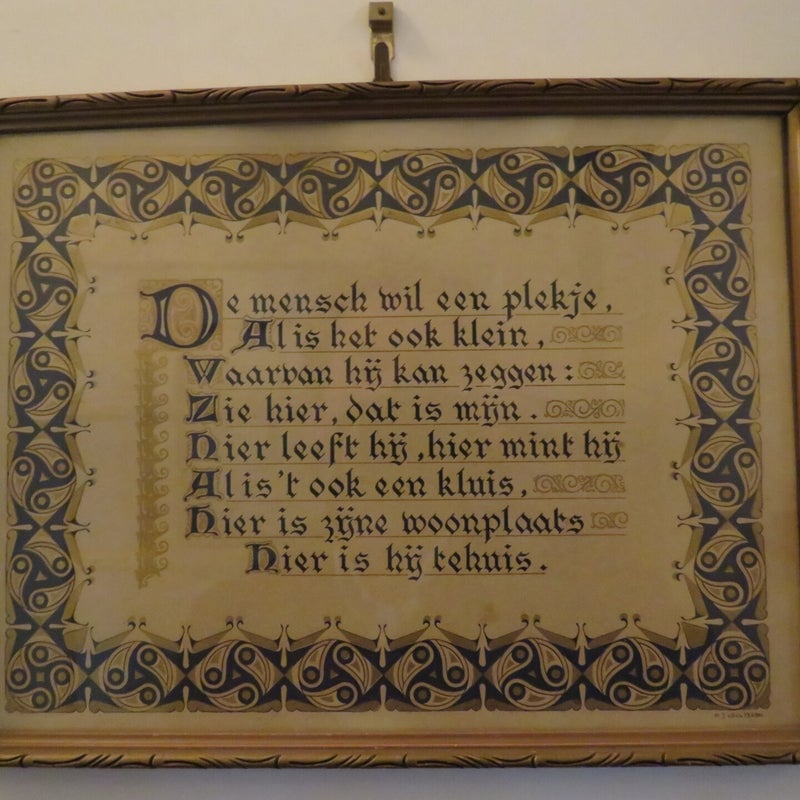 De mensch wil een plekje,
Al is het ook klein,
Waarvan hij kan zeggen:
Zie hier, dat is mijn.
Hier leeft hij, hier mint hij
Al is't ook een kluis,
Hier is zijne woonplaats
Hier is hij tehuis.